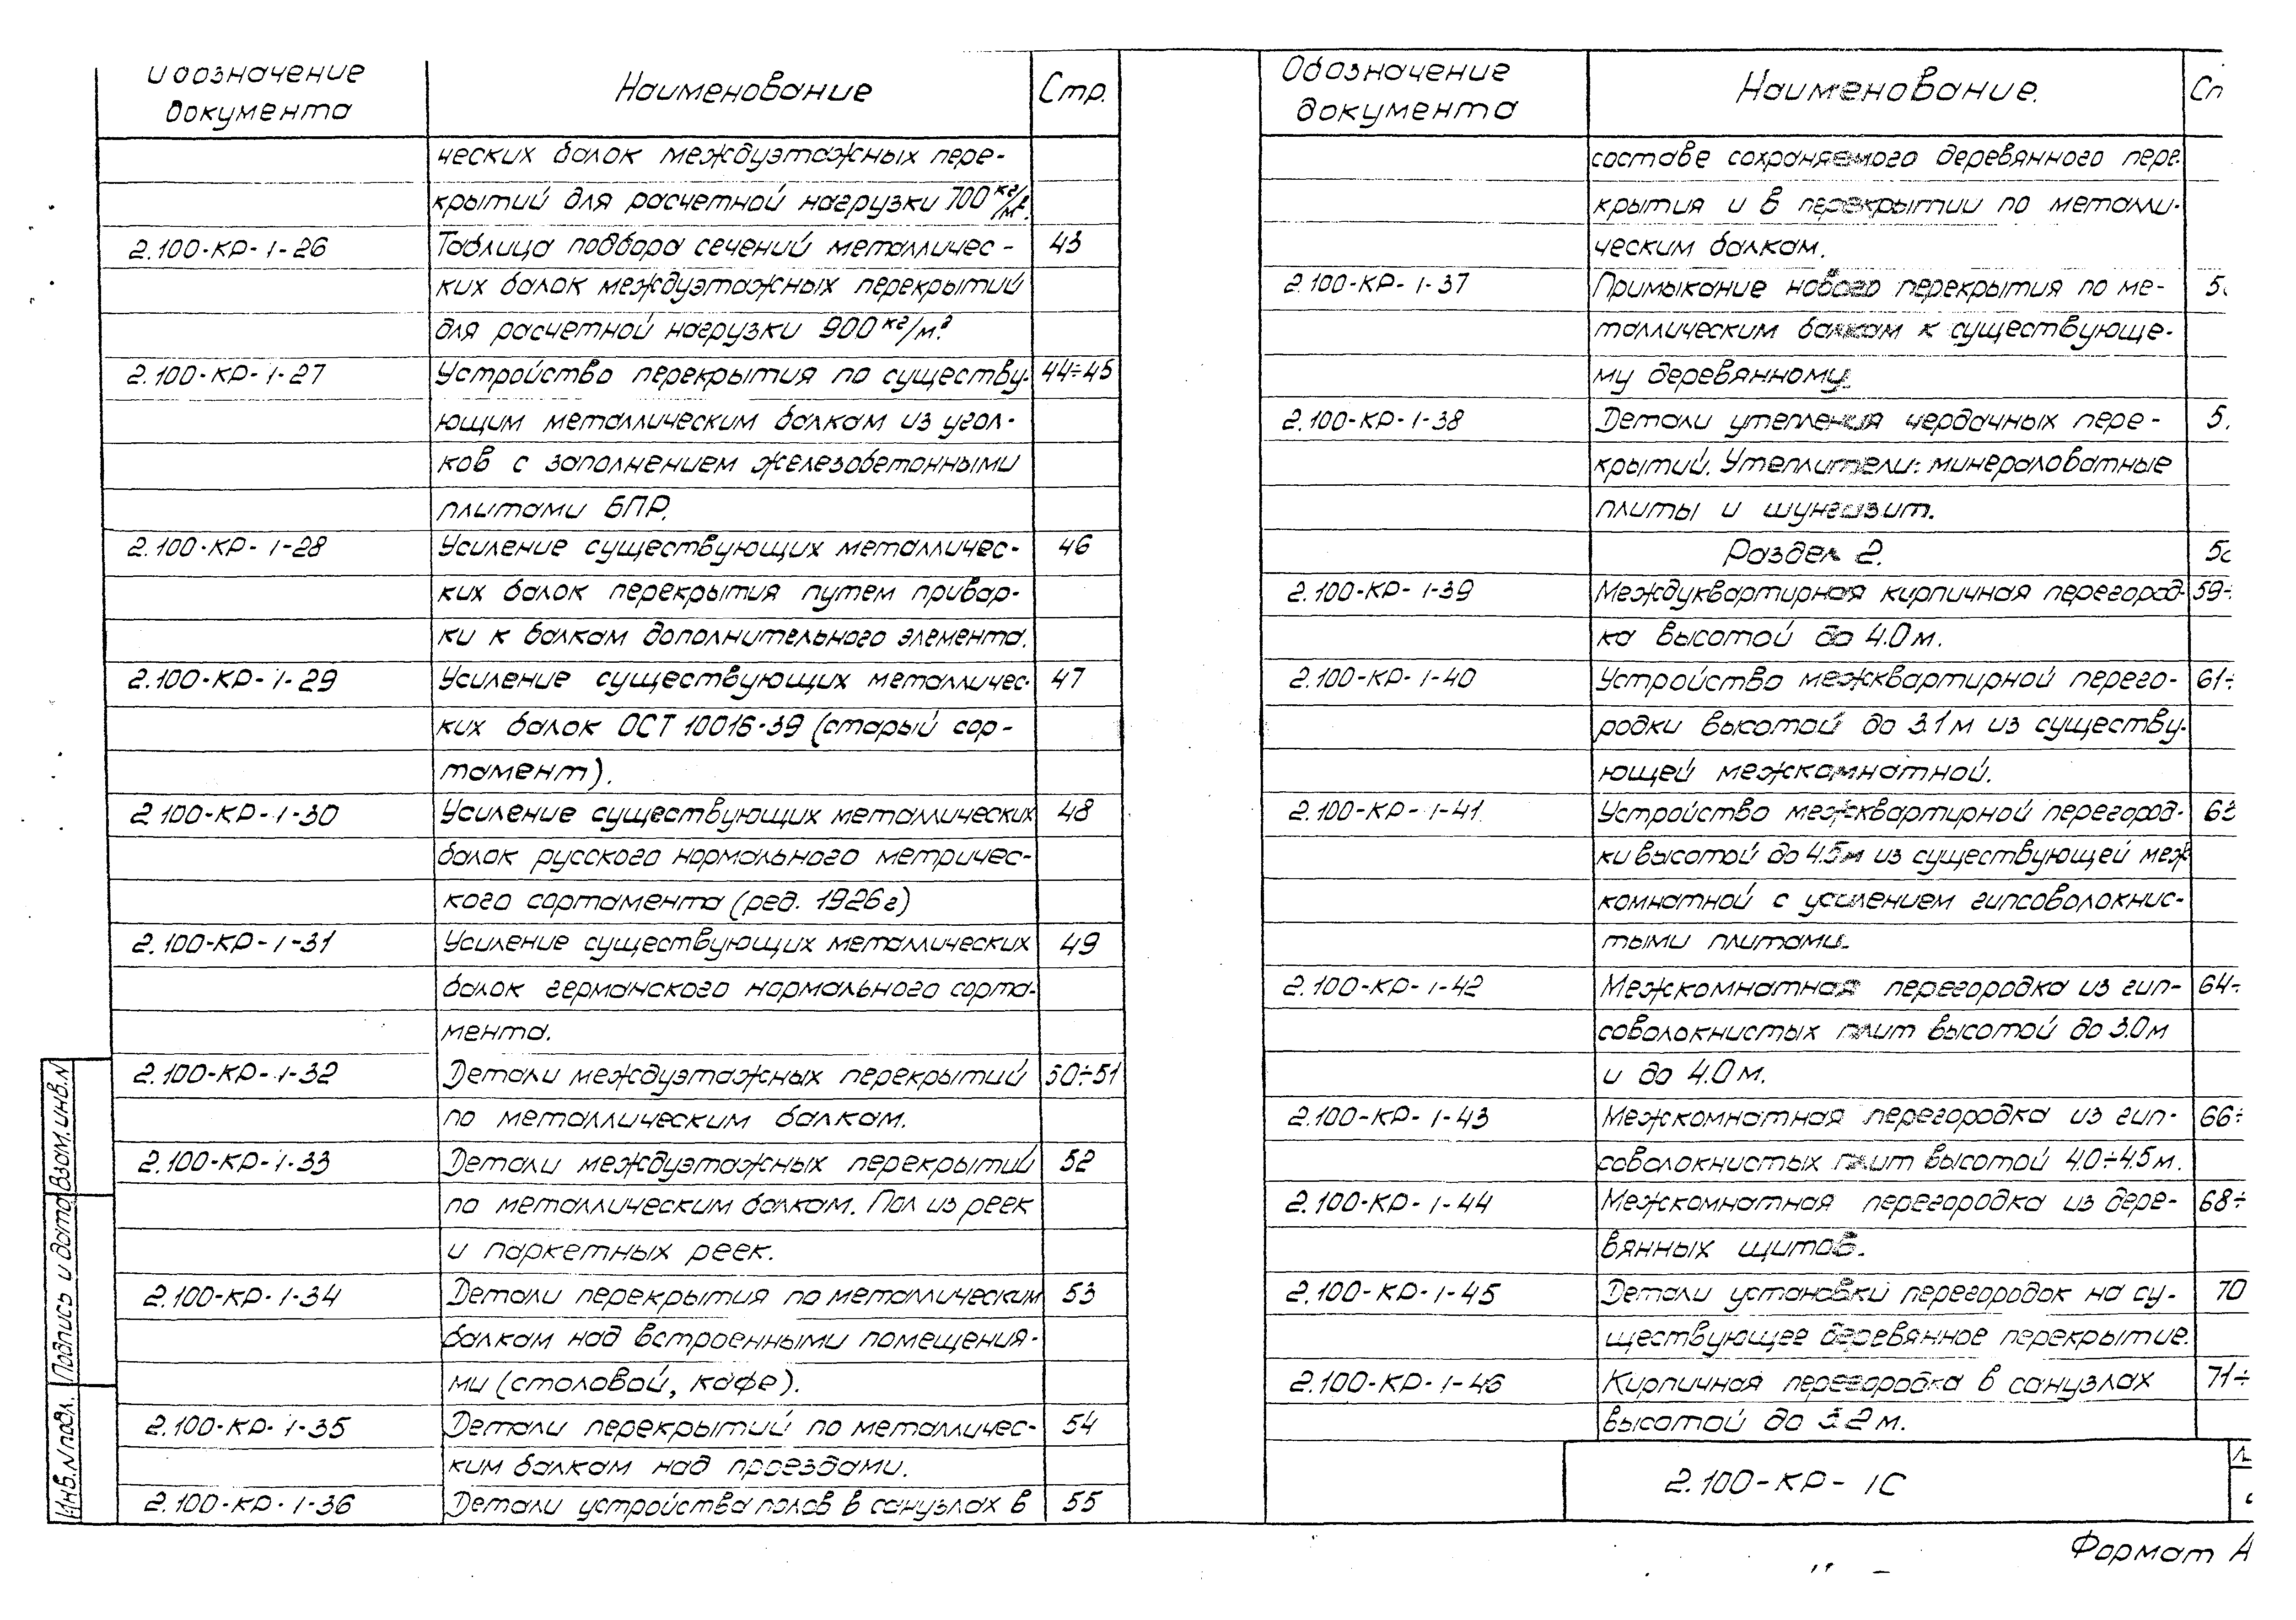 Обозначение
документа
Наименование
Стр.
ческих балок междуэтажных пере-
крытий для расчетной нагрузки 700 кг/м².
2.100-КР-1-26 Таблица подбора сечений металличес- 43
ких балок междуэтажных перекрытий
для расчетной нагрузки 900 кг/м².
2.100-КР-1-27 Устройство перекрытия по существу- 44÷45
ющим металлическим балкам из угол-
ков с заполнением железобетонными
плитами БПР.
2.100-КР-1-28 Усиление существующих металличес- 46
ких балок перекрытия путем привар-
ки к балкам дополнительного элемента.
2.100-КР-1-29 Усиление существующих металличес- 47
ких балок ОСТ 10016-39 (старый сор-
тамент).
2.100-КР-1-30 Усиление существующих металлических 48
балок русского нормального метричес-
кого сортамента (ред. 1926г)
2.100-КР-1-31 Усиление существующих металлических 49
балок германского нормального сорта-
мента.
2.100-КР-1-32 Детали междуэтажных перекрытий 50÷51
по металлическим балкам.
2.100-КР-1-33 Детали междуэтажных перекрытий 52
по металлическим балкам. Пол из реек
и паркетных реек.
2.100-КР-1-34 Детали перекрытия по металлическим 53
балкам над встроенными помещения-
ми (столовой, кафе).
2.100-КР-1-35 Детали перекрытий по металличес- 54
ким балкам над проездами.
2.100-КР-1-36 Детали устройства полов в санузлах в 55
Инв.N подл. Подпись и дата Взам.инв.N
Обозначение
документа
Наименование.
составе сохраняемого деревянного пере-
крытия и в перекрытии по металли-
ческим балкам.
2.100-КР-1-37 Примыкание нового перекрытия по ме-
таллическим балкам к существующе-
му деревянному.
2.100-КР-1-38 Детали утепления чердачных пере-
крытий. Утеплители: минераловатные
плиты и шунгизит.
Раздел 2.
2.100-КР-1-39 Междуквартирная кирпичная перегород- 59÷
ка высотой до 4.0 м.
2.100-КР-1-40 Устройство межквартирной перего- 61÷
родки высотой до 3.1 м из существу-
ющей межкомнатной.
2.100-КР-1-41 Устройство межквартирной перегород- 63
ки высотой до 4.5 м из существующей меж
комнатной с усилением гипсоволокнис-
тыми плитами.
2.100-КР-1-42 Межкомнатная перегородка из гип- 64÷
соволокнистых плит высотой до 3.0 м
и до 4.0 м.
2.100-КР-1-43 Межкомнатная перегородка из гип- 66÷
соволокнистых плит высотой 4.0÷4.5 м.
2.100-КР-1-44 Межкомнатная перегородка из дере- 68÷
вянных щитов.
2.100-КР-1-45 Детали установки перегородок на су- 70
ществующее деревянное перекрытие.
2.100-КР-1-46 Кирпичная перегородка в санузлах 71÷
высотой до 3.2 м.
2.100-КР-1С
Формат А